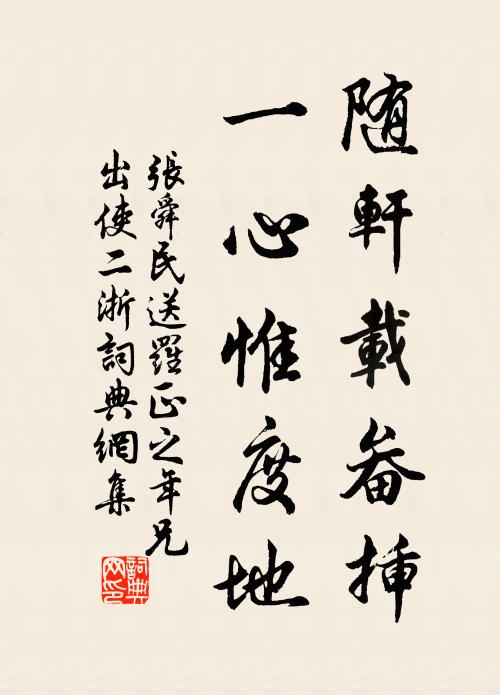 随軒載畚挿
一心惟度地
張舜民送羅正之年兄
出使二浙詞典網集
詞典
网印